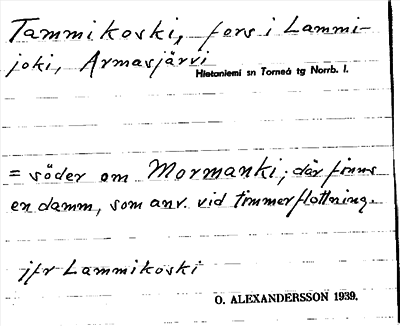 Tammikoski, fors i Lammi-
joki, Armasjärvi
Hietaniemi sn Torneå tg Norrb. l.
= söder om Mormanki; där finns
en damm, som anv. vid timmerflottning.
jfr Lammikoski
O. ALEXANDERSSON 1939.